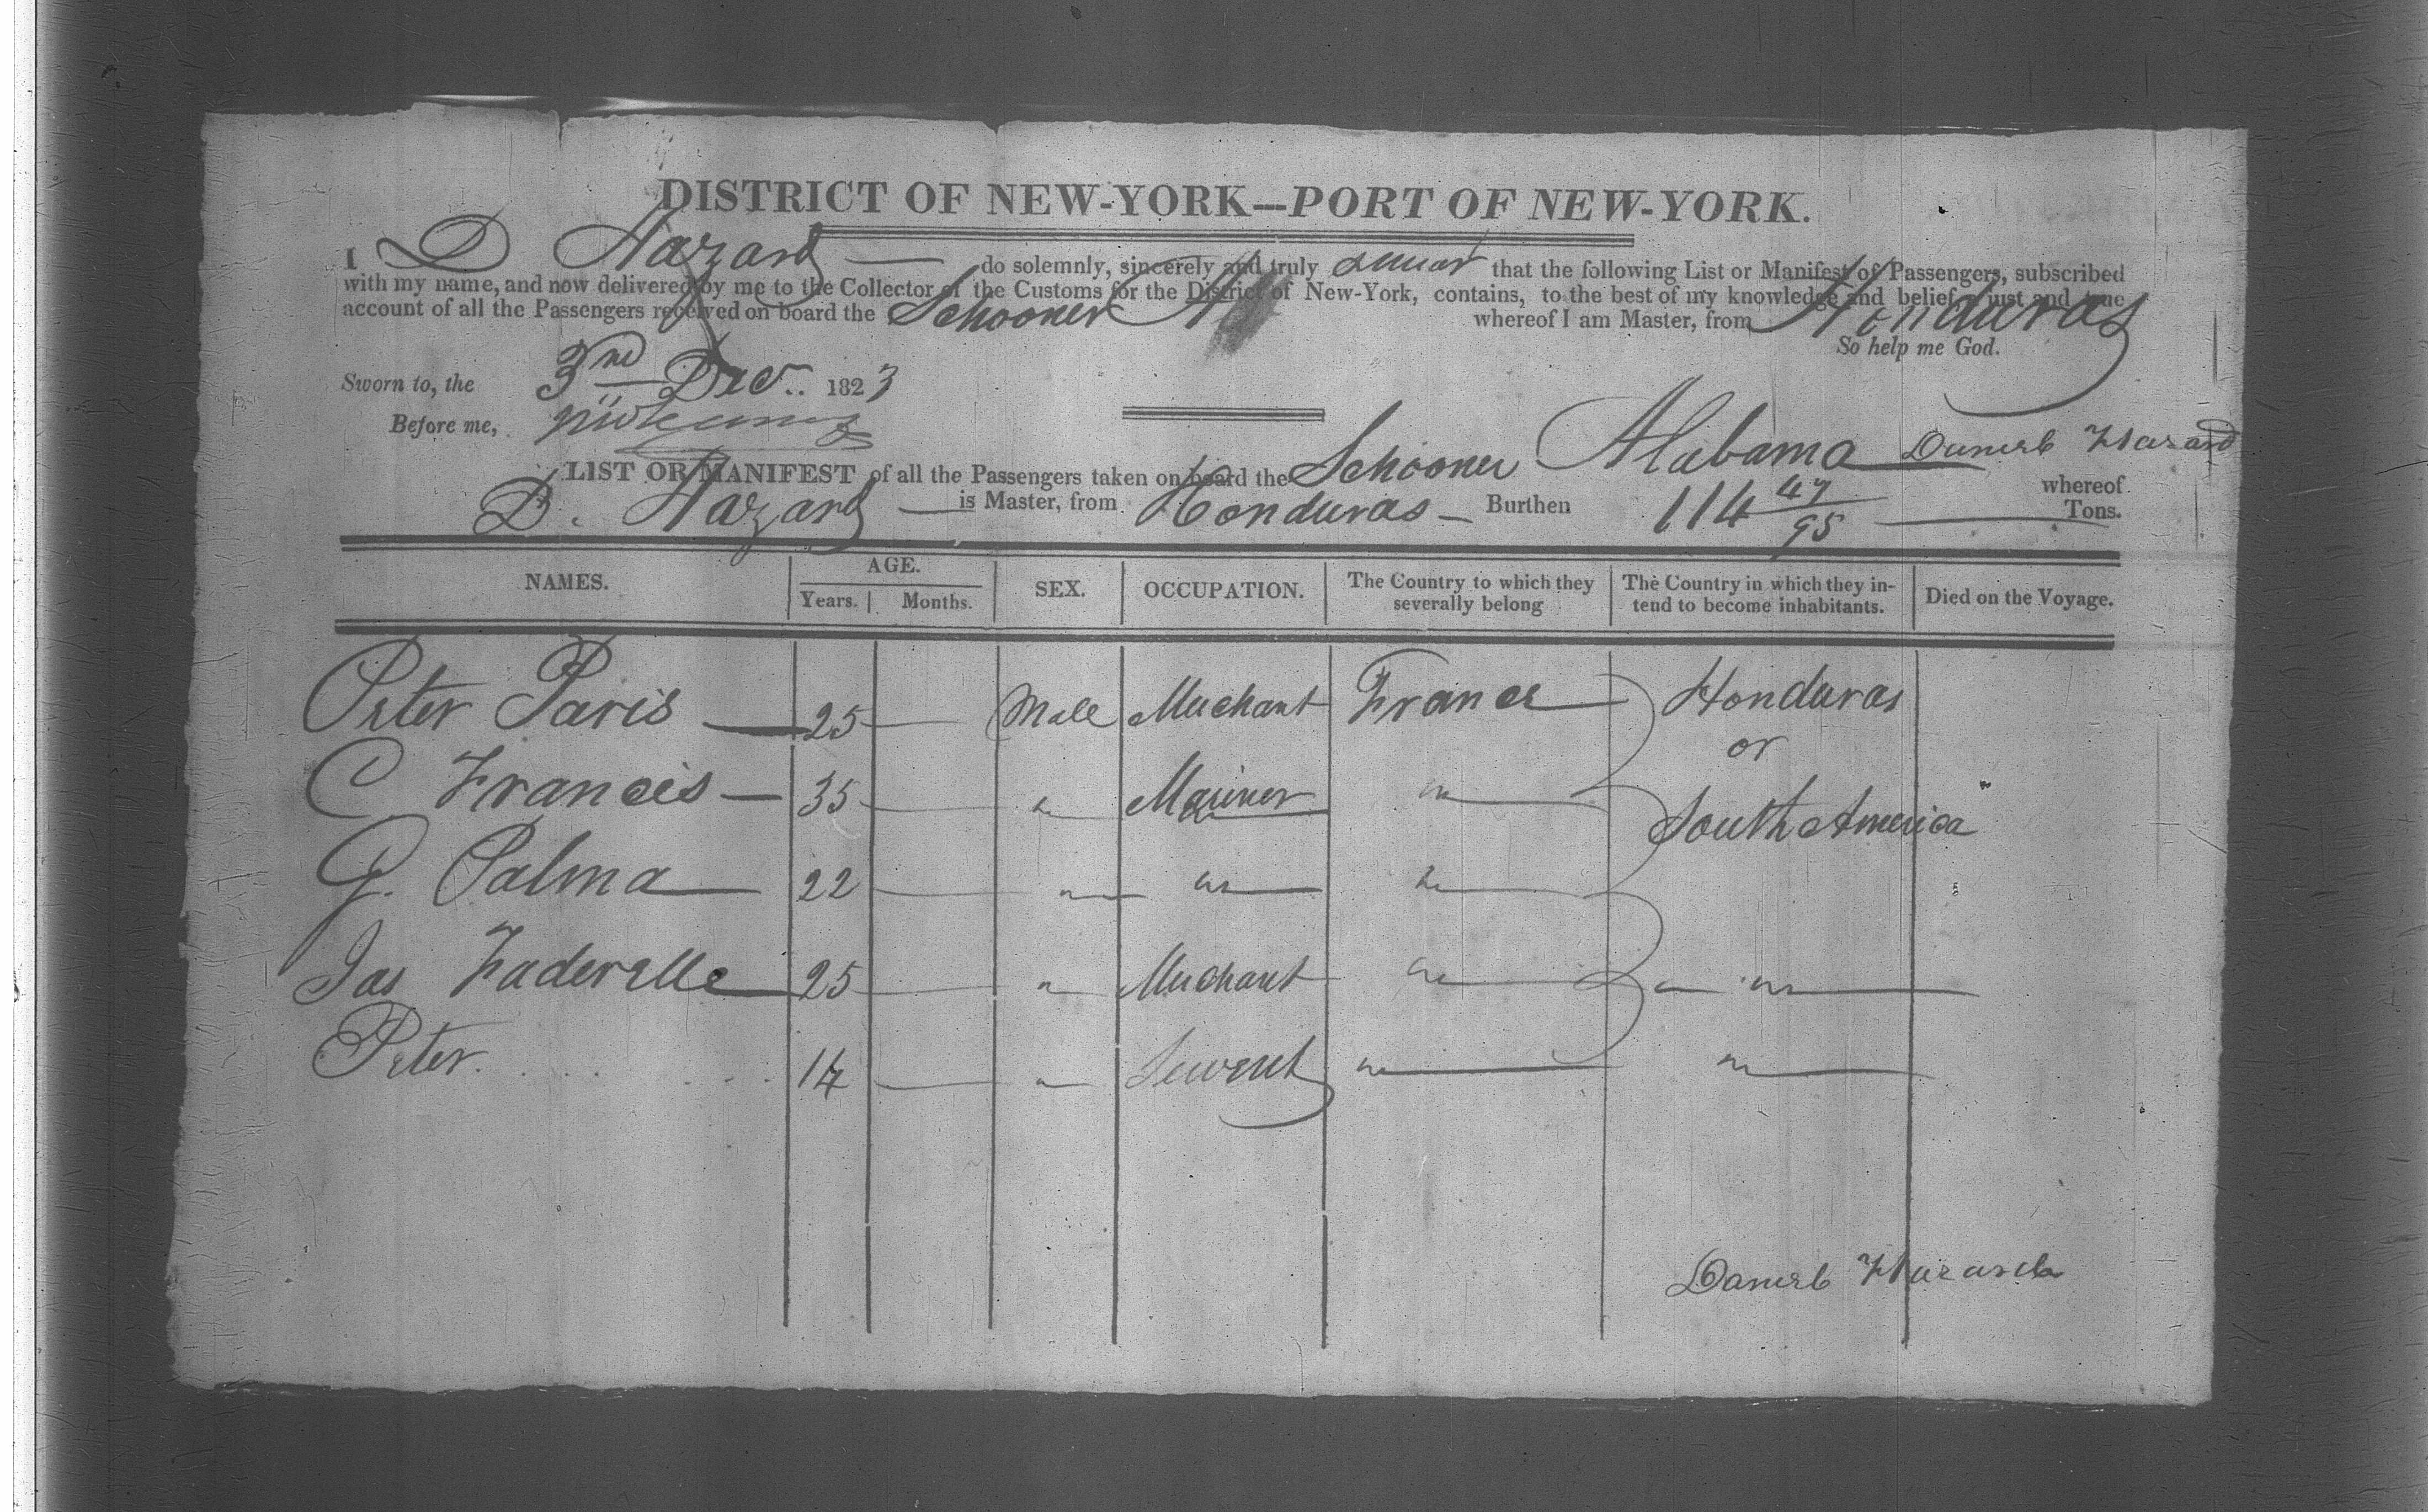 DISTRICT OF NEW-YORK—PORT OF NEW-YORK.
I D Hazard do solemnly, sincerely and truly swear that the following List or Manifest of Passengers, subscribed
with my name, and now delivered by me to the Collector of the Customs for the District of New-York, contains, to the best of my knowledge and belief a just and true
account of all the Passengers received on board the Schooner whereof I am Master, from Honduras
So help me God.
Sworn to, the 3rd Dec. 1823
Before me,
LIST OR MANIFEST of all the Passengers taken on board the Schooner Alabama Daniel Hazard whereof
D. Hazard is Master, from Honduras Burthen 114 47/95 Tons.
NAMES. AGE. SEX. OCCUPATION. The Country to which they severally belong The Country in which they in-tend to become inhabitants. Died on the Voyage.
Years. Months.
Peter Paris 25 Male Merchant France Honduras
or
C Francis 35 " Mariner " South America
G. Palma 22 " " "
Jas Laderelle 25 " Merchant " " "
Peter 14 " Servent " "
Daniel Hazard